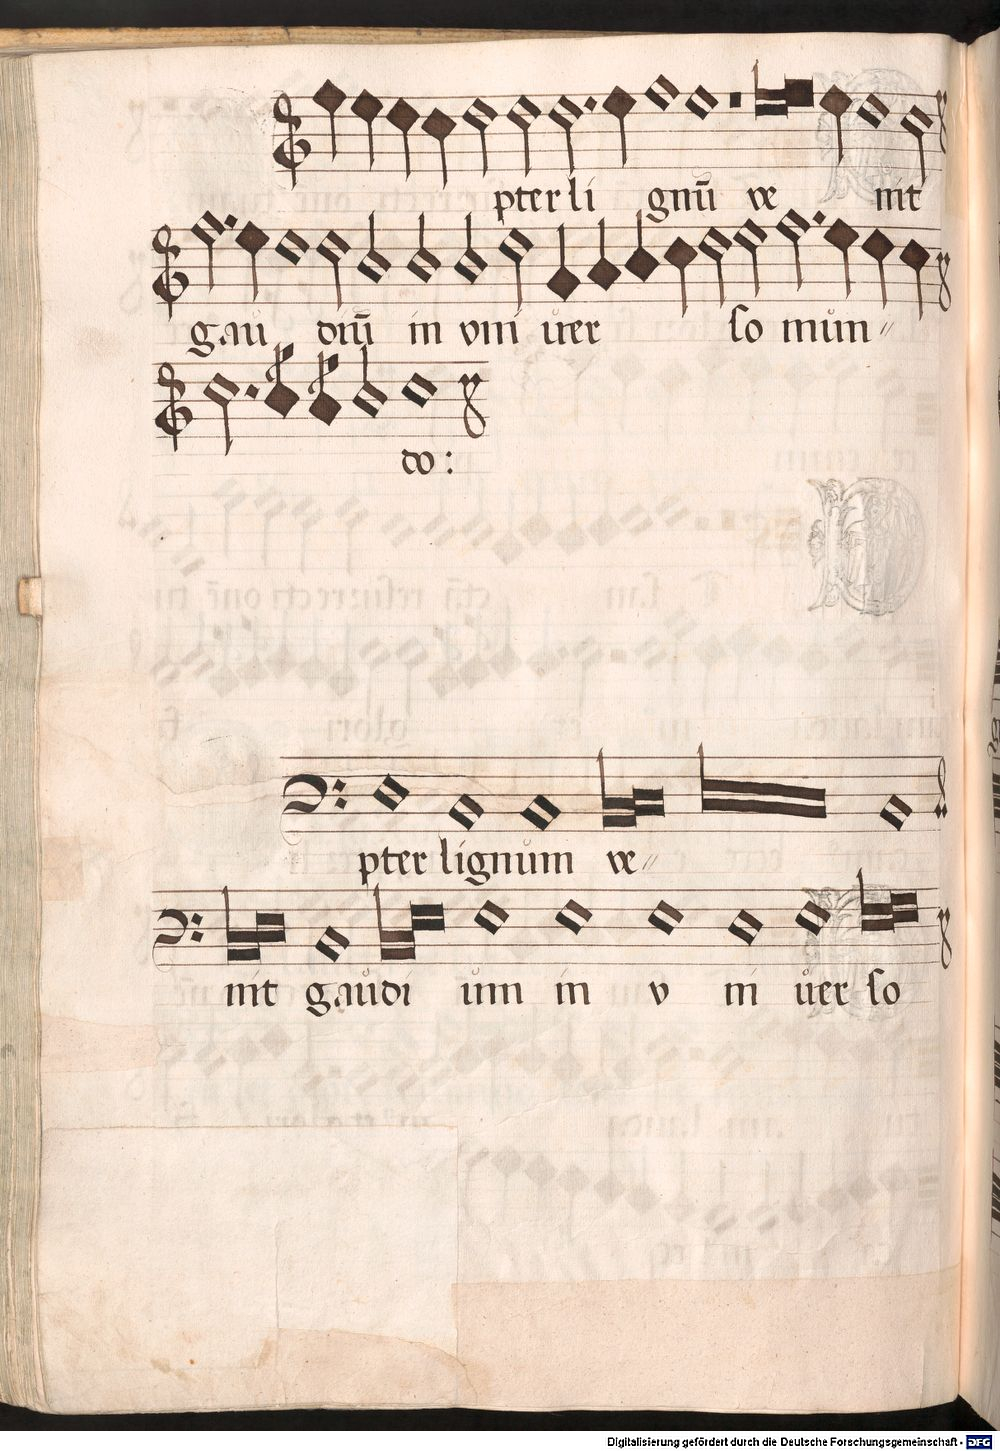 pter li gnū ve nit
gau diū in vni uer so mun〃
do:
pter lignum ve〃
nit gaudi um in v ni uer so
Digitalisierung gefördert durch die Deutsche Forschungsgemeinschaft - DFG